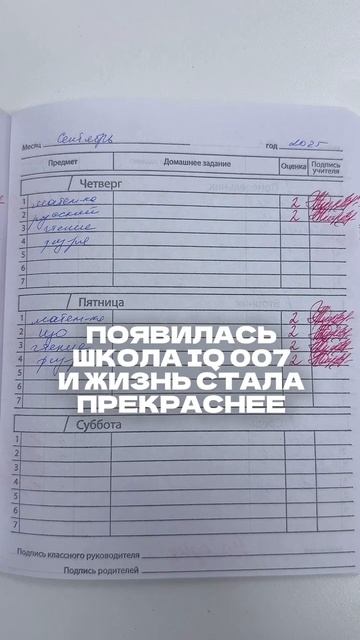 Месяц Сентябрь год 2025
Предмет Домашнее задание Оценка Подпись учителя
Четверг
1 матем-ка 2
2 русский 2
3 чтение
4 физ-ра
5
6
7
Пятница
1 матем-ка 2
2 ИЗО 2
3 чтение 2
4 физ-ра 2
5
6
7
ПОЯВИЛАСЬ
ШКОЛА IQ 007
И ЖИЗНЬ СТАЛА
ПРЕКРАСНЕЕ
Суббота
1
2
3
4
5
6
7
Подпись классного руководителя
Подпись родителей